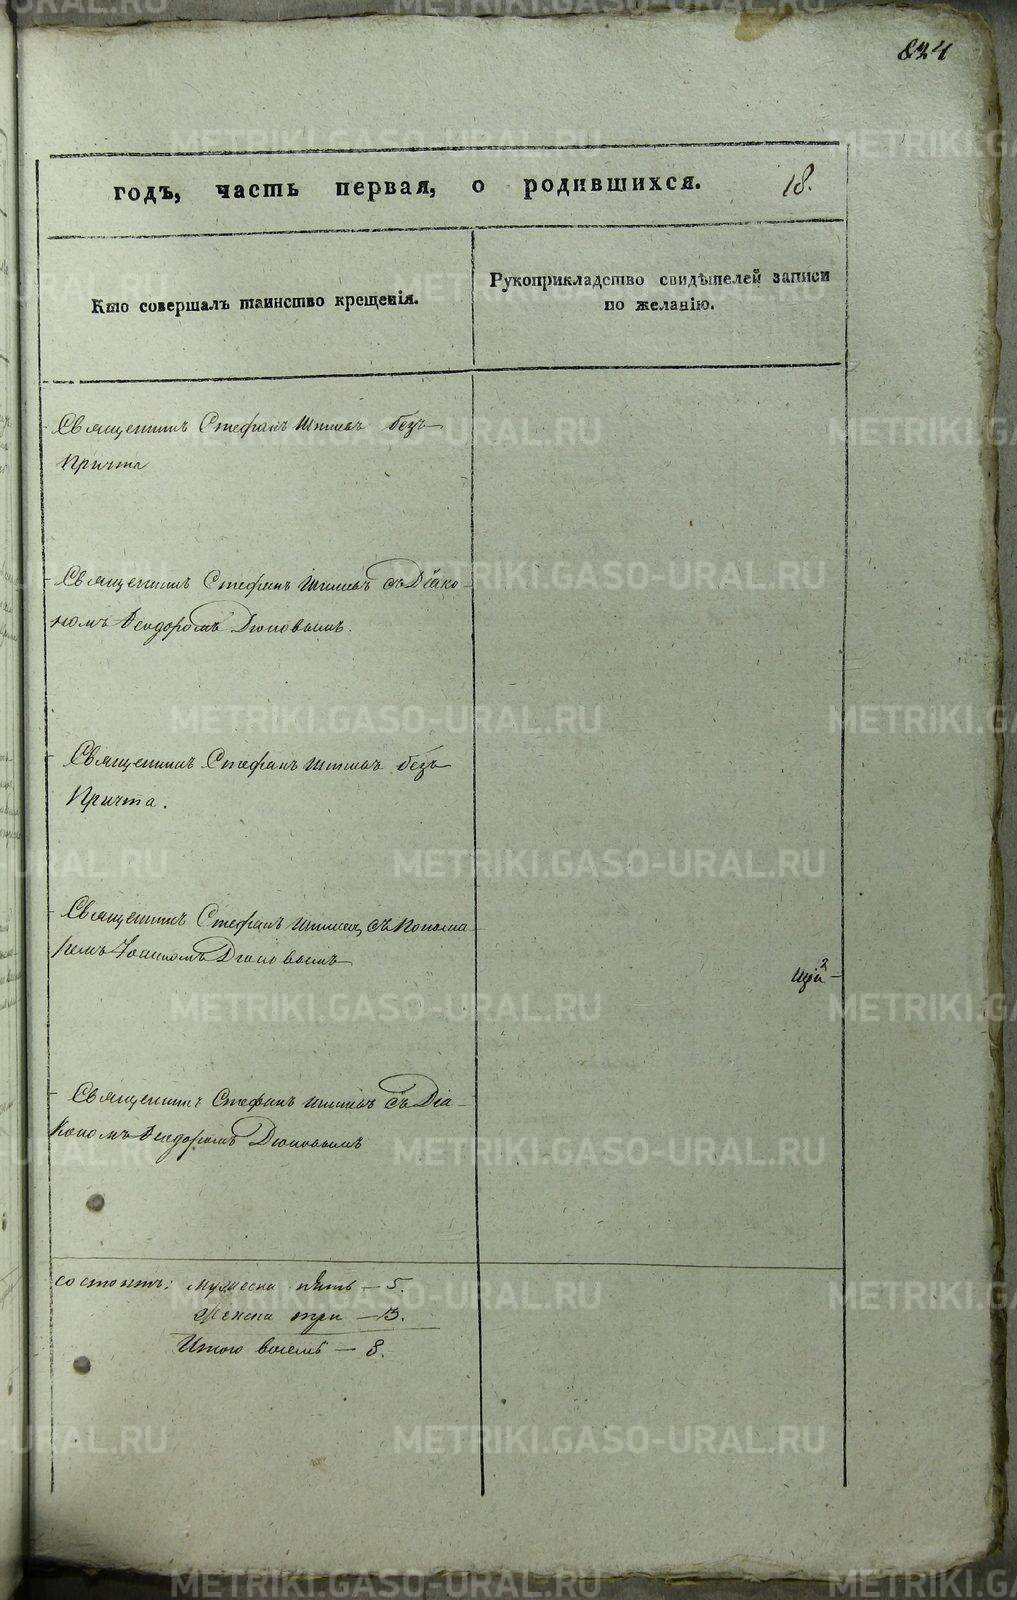 824
годъ, часть первая, о родившихся. 18.
Кто совершалъ таинство крещенія.
Рукоприкладство свидѣтелей записи
по желанію.
Священникъ Стефанъ безъ
Причта
Священникъ Стефанъ съ Діако-
номъ Ѳеодоромъ Дюповымъ.
Священникъ Стефанъ безъ
Причта.
Священникъ Стефанъ съ Понома
ремъ Іоанномъ Дюповымъ
Священникъ Стефанъ съ Діа-
кономъ Ѳеодоромъ Дюповымъ
состоитъ: Мужеска пять — 5.
Женска три — 3.
Итого восемь — 8.
METRIKI.GASO-URAL.RU